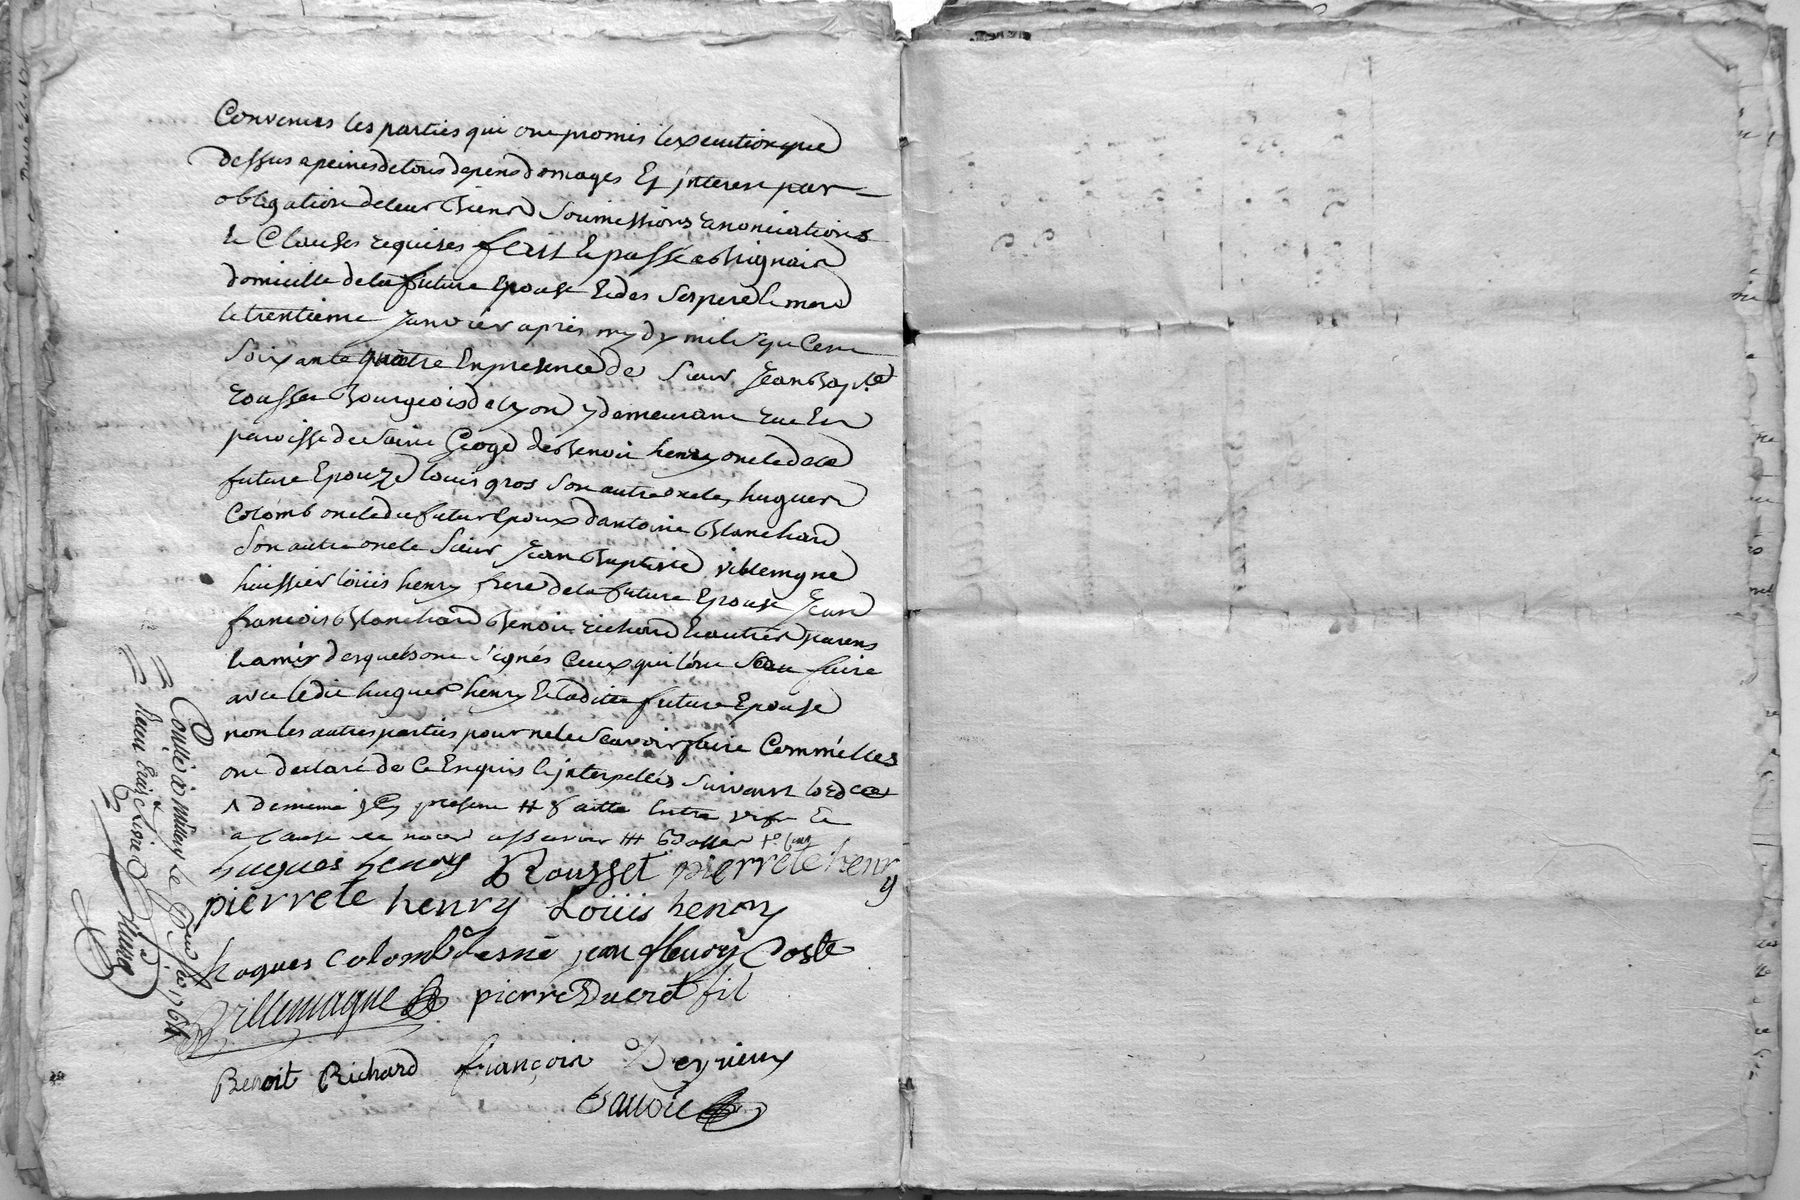 Convenues les parties qui ont promis lexecution que
dessus a peines de tous depens domages Et jnterest par
obligation de leur Biens Soumissions renonciations
et Clauses requises fait et passé a Brignais
domicille de la future Epouse Et de Ses pere et mere
le trentieme janvier apres mydy mil Sept Cent
Soixante quatre En presence de Sieur Jean Bapte
rousset Bourgeois de lyon y demeurant rue Et
paroisse de Saint George de Benoit henry oncle de la
future Epouze louis gros Son autre oncle, hugues
Colomb oncle du futur Epoux d'antoine Blanchard
Son autre oncle Sieur Jean Baptiste villemagne
huissier loüis henry frere de la future Epouse Jean
françois Blanchard Benoit richard Et autres parens
Et amis desquels ont signés Ceux qui l'ont Sceu faire
avec ledit hugues henry Et laditte future Epouse
non les autres parties pour ne le Scavoir faire Comm'elles
ont declaré de Ce Enquis Et jnterpellés Suivant ledit
de meme present # faitte Entre vifs Et
a Cause de noces
hugues henry Rousset pierrete henry
pierrete henry Loüis henry
hugues colomb lesné jean fleury Doste
Villemagne pierre Ducret fil
Benoit Richard françois Deyrieux
Contlé à Millery le 1764